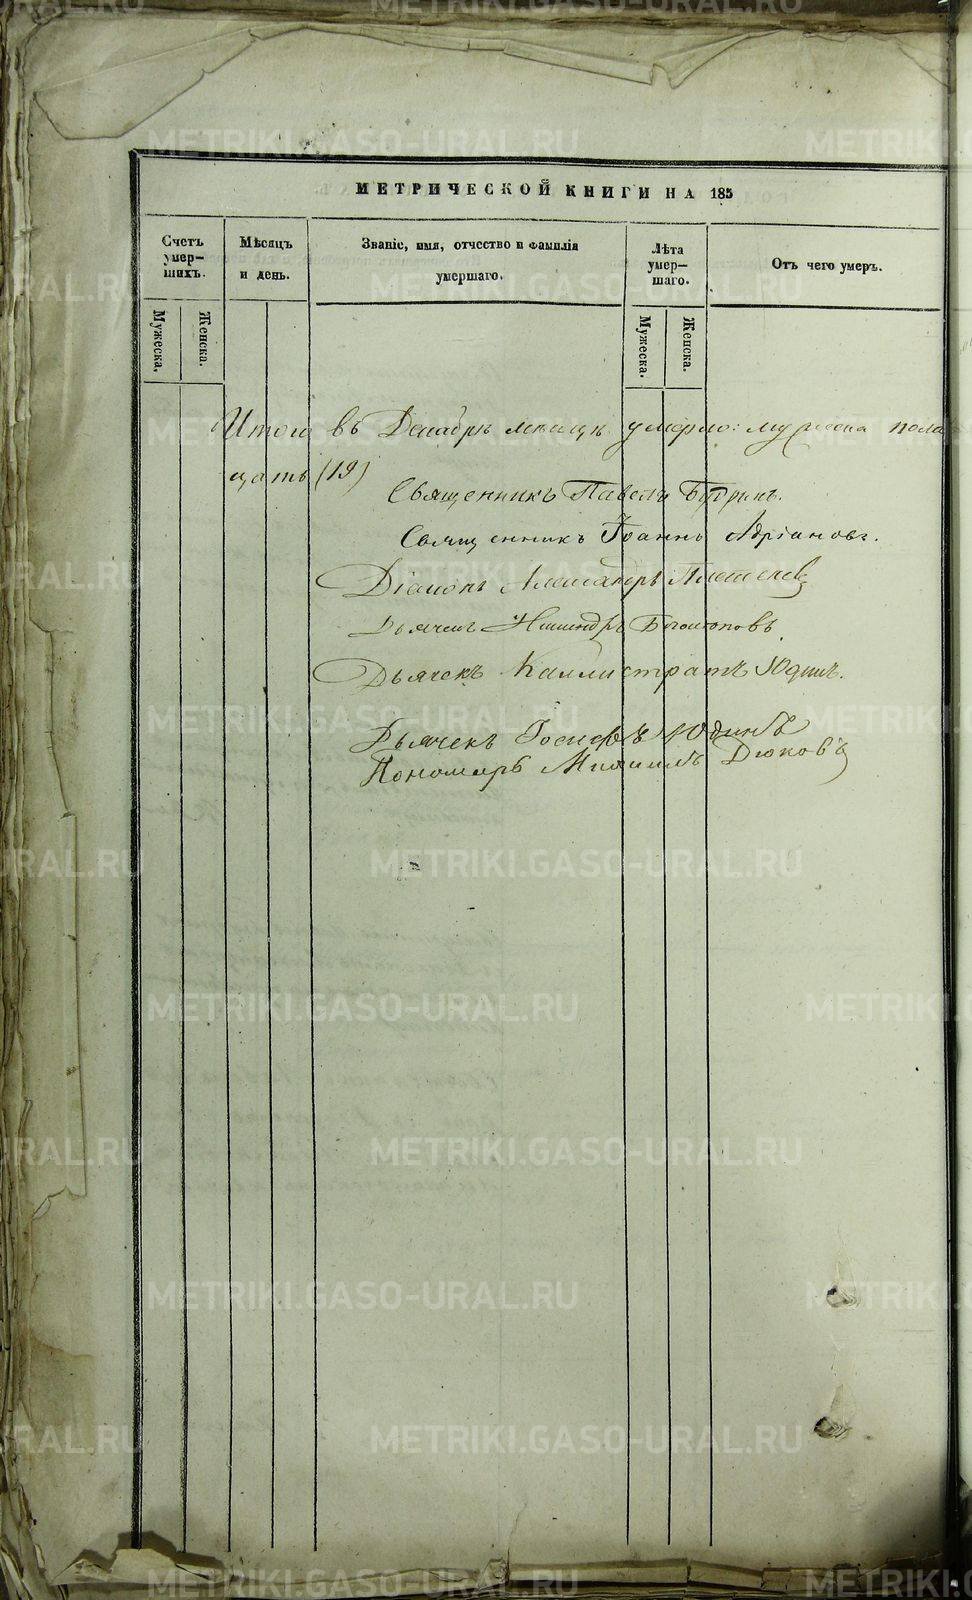 МЕТРИЧЕСКОЙ КНИГИ НА 185
Счетъ умер-шихъ.
Мѣсяцъ и день.
Званіе, имя, отчество и фамилія умершаго.
Лѣта умер-шаго.
Отъ чего умеръ.
Мужеска.
Женска.
Мужеска.
Женска.
Итого въ Декабрѣ мѣсяцѣ умерло: мужеска пола
цать (19)
Священникъ Павелъ
Священникъ Іоаннъ Адріановъ.
Діаконъ Александръ
Дьячекъ
Дьячекъ Каллистратъ Юдинъ.
Дьячекъ Іосифъ Юдинъ
Пономарь Михаилъ Дюковъ
METRIKI.GASO-URAL.RU